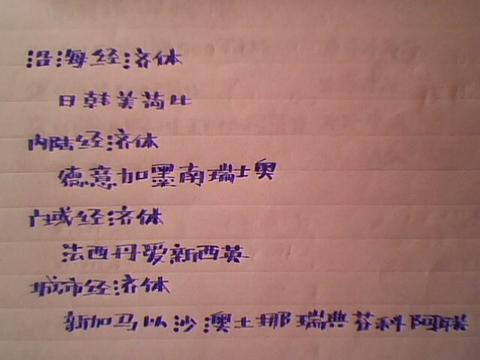 沿海经济体
日韩美荷比
内陆经济体
德意加墨南瑞士奥
内或经济体
法西丹爱新西英
城市经济体
新加马以沙澳土挪瑞典芬科阿联